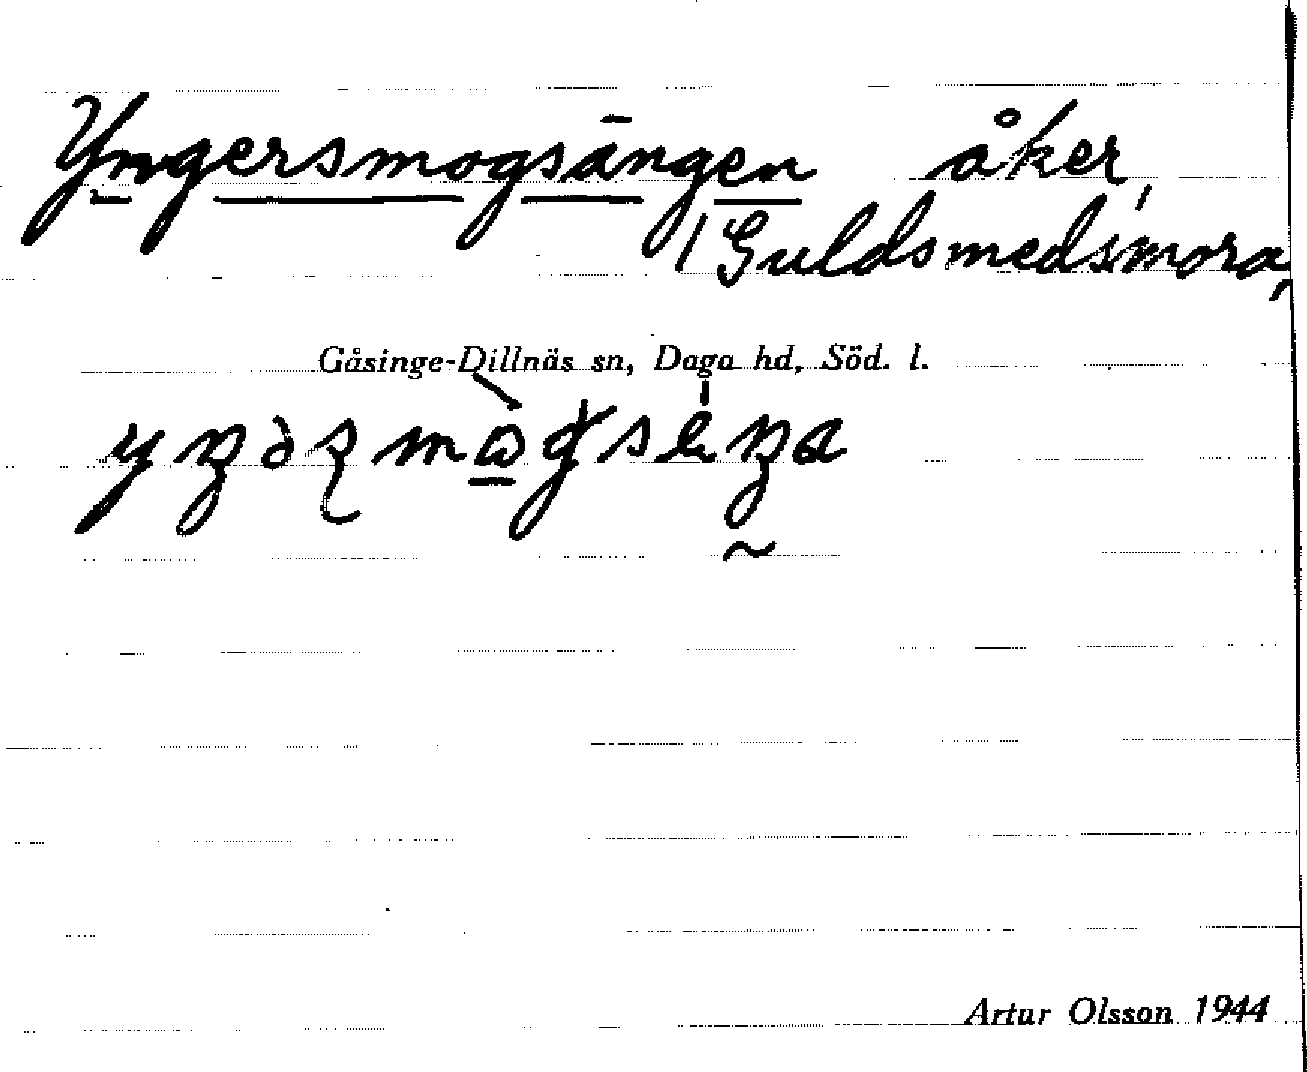 Yngersmogsängen åker,
Guldsmedsmora,
Gåsinge-Dillnäs sn, Daga hd, Söd. l.
Artur Olsson 1944